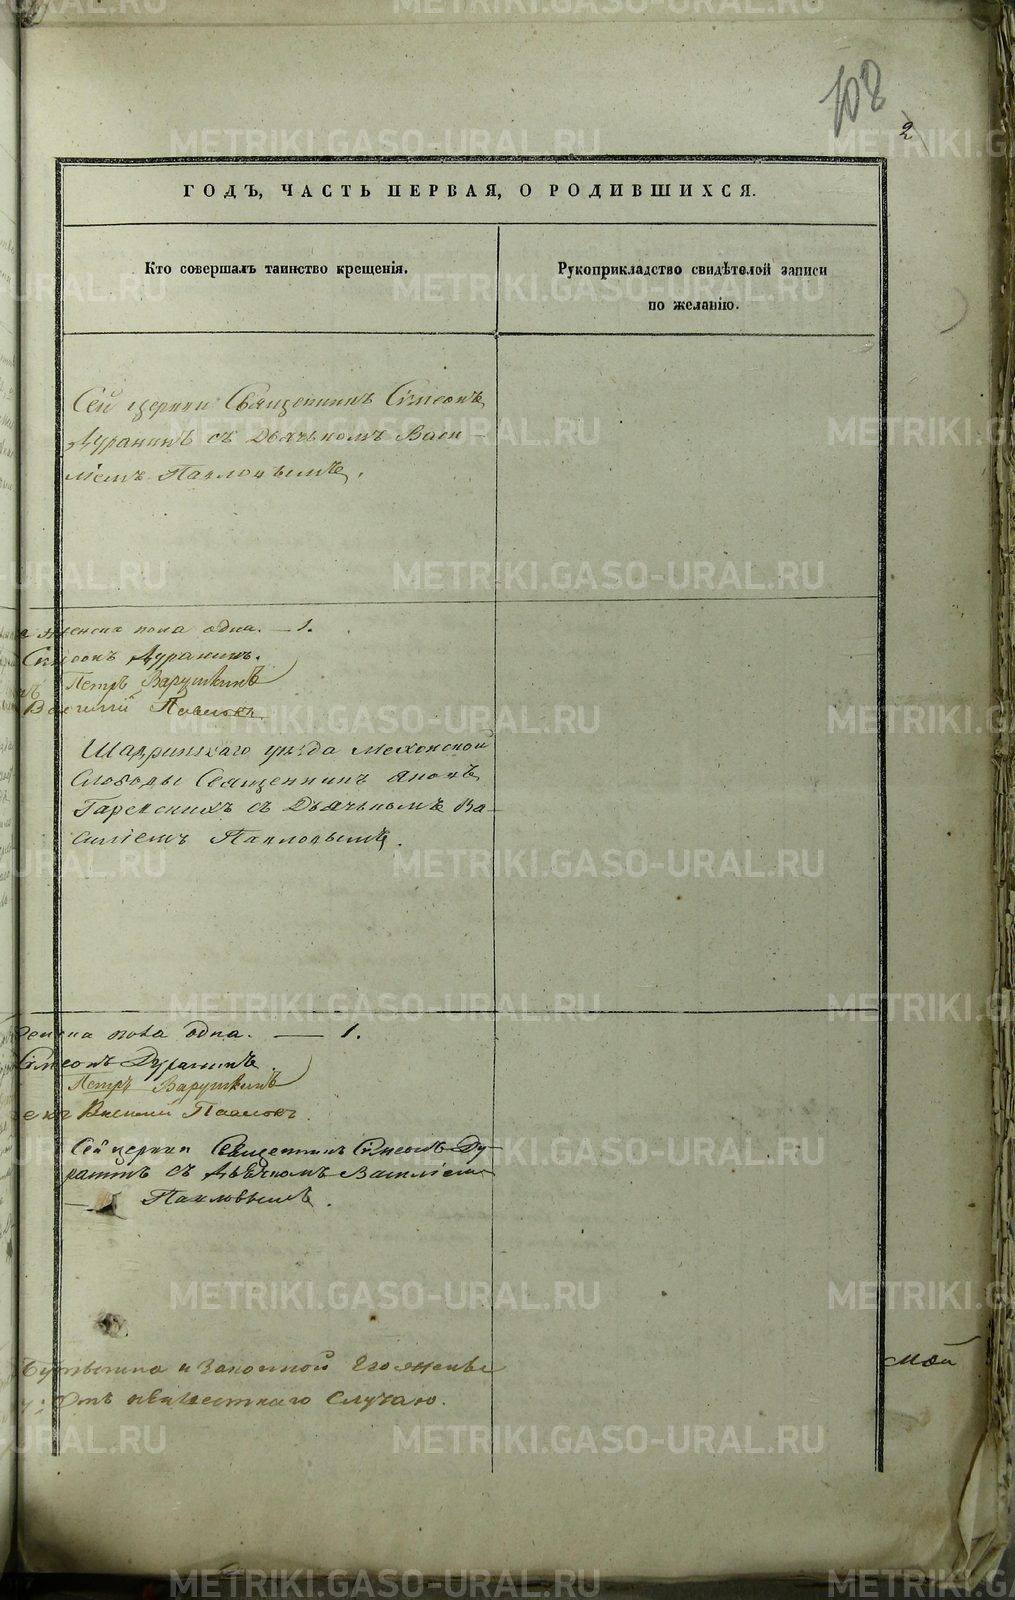 108
2
ГОДЪ, ЧАСТЬ ПЕРВАЯ, О РОДИВШИХСЯ.
Кто совершалъ таинство крещенія.
Рукоприкладство свидѣтелей записи
по желанію.
Сей церкви Священникъ Сѵмеонъ
Дуранинъ съ Дьячькомъ Васи-
ліемъ Павловымъ.
женска пола одна. — 1.
Сѵмеонъ Дуранинъ.
Петръ Варушкинъ
Василий Павловъ
Шадринскаго уѣзда Мехонской
Слободы Священникъ Іяковъ
съ Дьячькомъ Ва-
силіемъ Павловымъ.
женска пола одна. — 1.
Сѵмеонъ Дуранинъ
Петръ Варушкинъ
Василий Павловъ.
Сей церкви Священникъ Сѵмеонъ Ду-
ранинъ съ Дьячкомъ Василіемъ
Павловымъ.
и Законной Его жены
Отъ неизвестнаго Случаю.
Май
METRIKI.GASO-URAL.RU